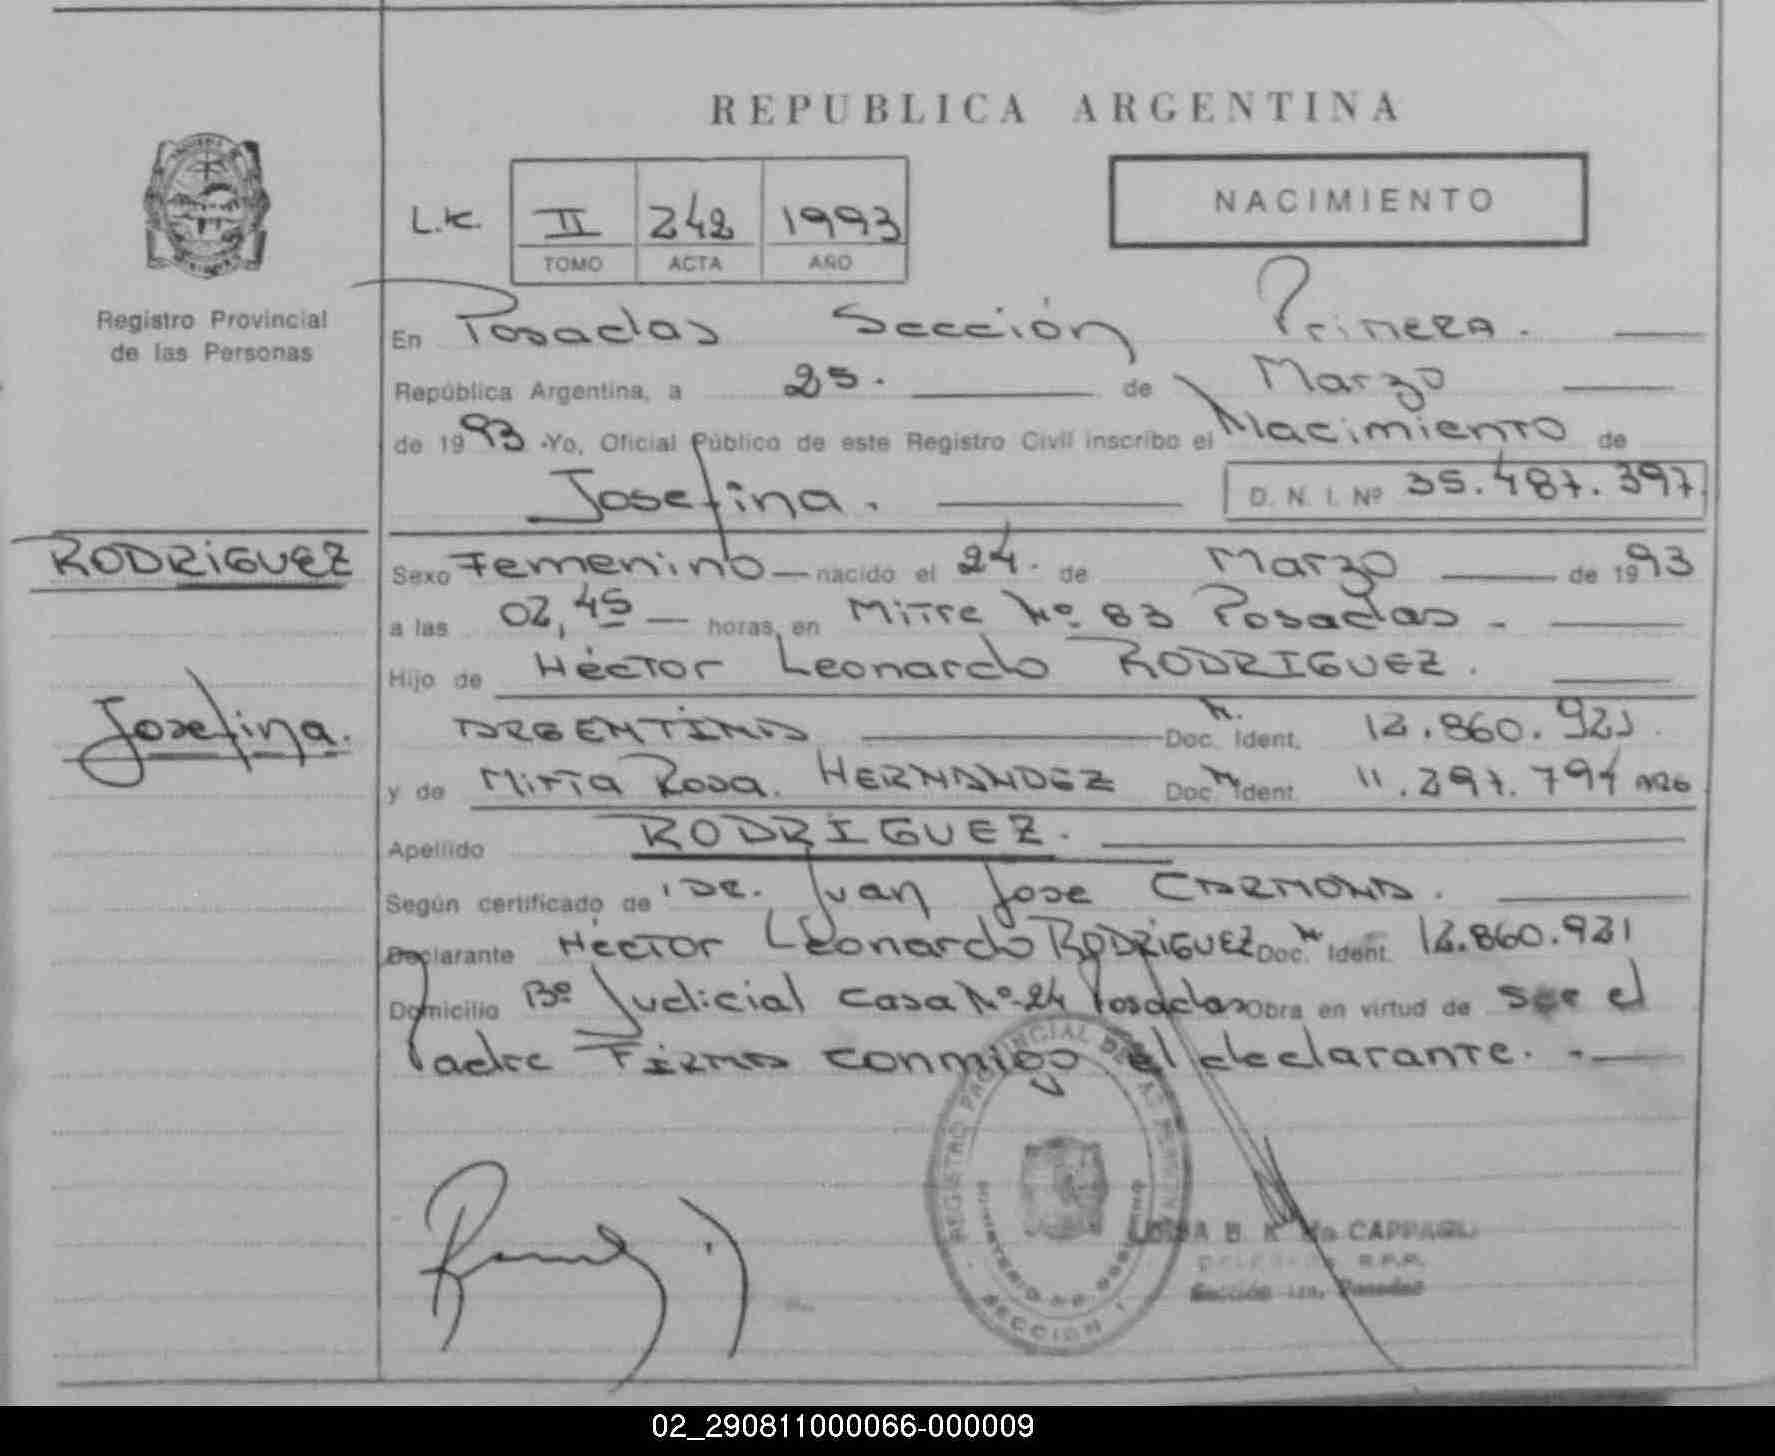 REPUBLICA ARGENTINA
NACIMIENTO
L.K. II 242 1993
TOMO ACTA AÑO
Registro Provincial
de las Personas
En Posadas Sección Primera.
República Argentina, a 25. de Marzo
de 1993 .Yo, Oficial Público de este Registro Civil inscribo el Nacimiento de
Josefina. D. N. I. Nº 35.487.397
RODRIGUEZ
Sexo Femenino nacido el 24. de Marzo de 1993
a las 02,45 horas, en Mitre Nº 83 Posadas.
Hijo de Héctor Leonardo RODRIGUEZ.
Josefina.
ARGENTINO Doc. Ident. 12.860.921.
y de Mirta Rosa. HERNANDEZ Doc. Ident. 11.297.794 ARG
Apellido RODRIGUEZ.
Según certificado de DR. Juan Jose CARMONA.
Declarante Héctor Leonardo RODRIGUEZ Doc. Ident. 12.860.921
Domicilio Bº Judicial casa Nº 24 Posadas Obra en virtud de ser el
Padre FIRMA conmigo el declarante.
REGISTRO PROVINCIAL DE LAS PERSONAS
MINISTERIO DE GOBIERNO
SECCION
B. K. de CAPPARELLI
R.P.P.
Sección 1ra. Posadas
02_290811000066-000009